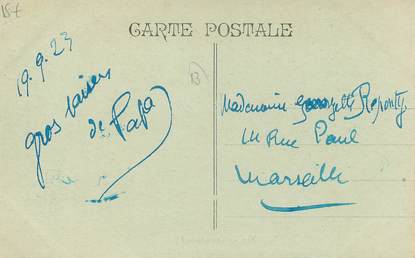 15€
CARTE POSTALE
19.9.23
gros baisers
de Papa
B
Mademoiselle Georgette
14 Rue Paul
Marseille